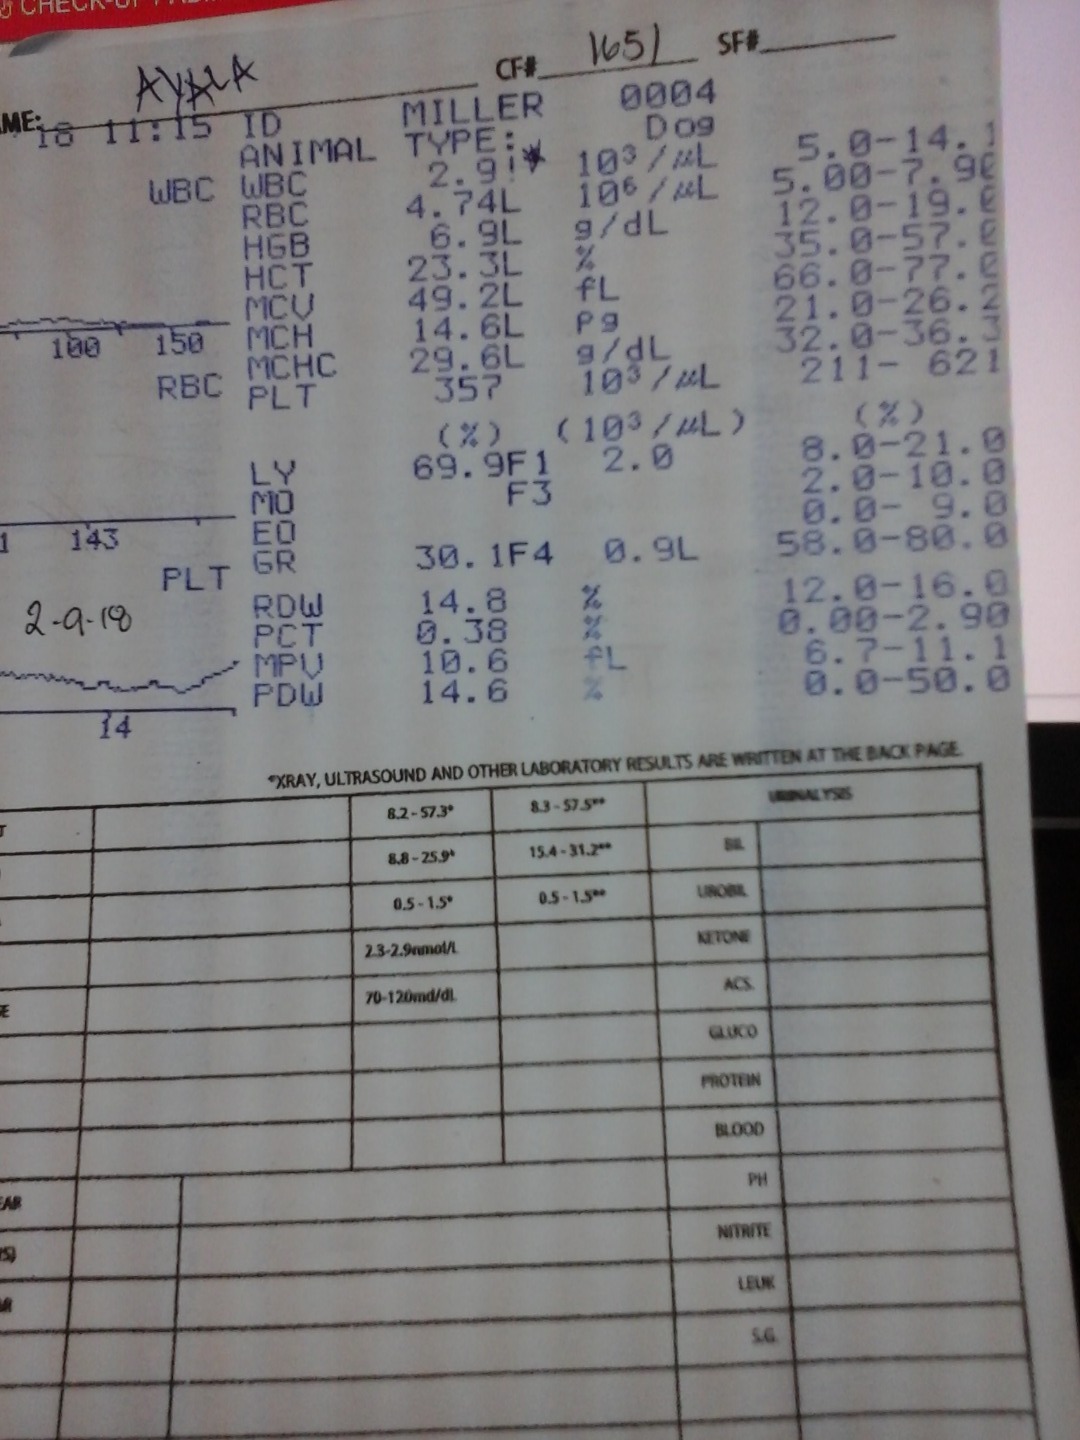 CHECK-UP
AME: AYALA CF# 1651 SF#
18 11:15 ID MILLER 0004
ANIMAL TYPE: Dog
WBC WBC 2.9!* 10³/µL 5.0-14.1
RBC 4.74L 10⁶/µL 5.00-7.9
HGB 6.9L g/dL 12.0-19.
HCT 23.3L % 35.0-57.
MCV 49.2L fL 66.0-77.
100 150 MCH 14.6L pg 21.0-26.2
MCHC 29.6L g/dL 32.0-36.3
RBC PLT 357 10³/µL 211- 621
(%) (10³/µL) (%)
LY 69.9F1 2.0 8.0-21.0
MO F3 2.0-10.0
1 143 EO 0.0- 9.0
GR 30.1F4 0.9L 58.0-80.0
PLT
2-9-18 RDW 14.8 % 12.0-16.0
PCT 0.38 % 0.00-2.90
MPV 10.6 fL 6.7-11.1
PDW 14.6 % 0.0-50.0
14
*XRAY, ULTRASOUND AND OTHER LABORATORY RESULTS ARE WRITTEN AT THE BACK PAGE.
T 8.2 - 57.3* 8.3 - 57.5** URINALYSIS
8.8 - 25.9* 15.4 - 31.2** BIL
0.5 - 1.5* 0.5 - 1.5** UROBIL
2.3-2.9nmol/L KETONE
E 70-120md/dL ACS.
GLUCO
PROTEIN
BLOOD
EAR PH
RS) NITRITE
AR LEUK
S.G.